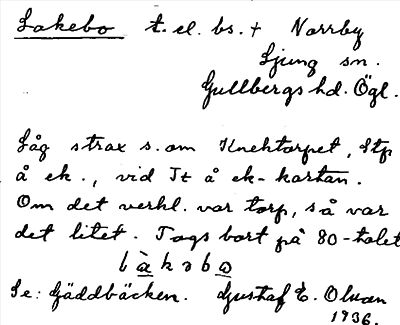 Lakebo t. el. bs. + Norrby
Ljung sn.
Gullbergs hd. Ögl.
Låg strax s. om Knektorpet, Stp
å ek., vid It å ek-kartan.
Om det verkl. var torp, så var
det litet. Togs bort på 80-talet
Se: Gäddbäcken. Gustaf E. Olsson
1936.